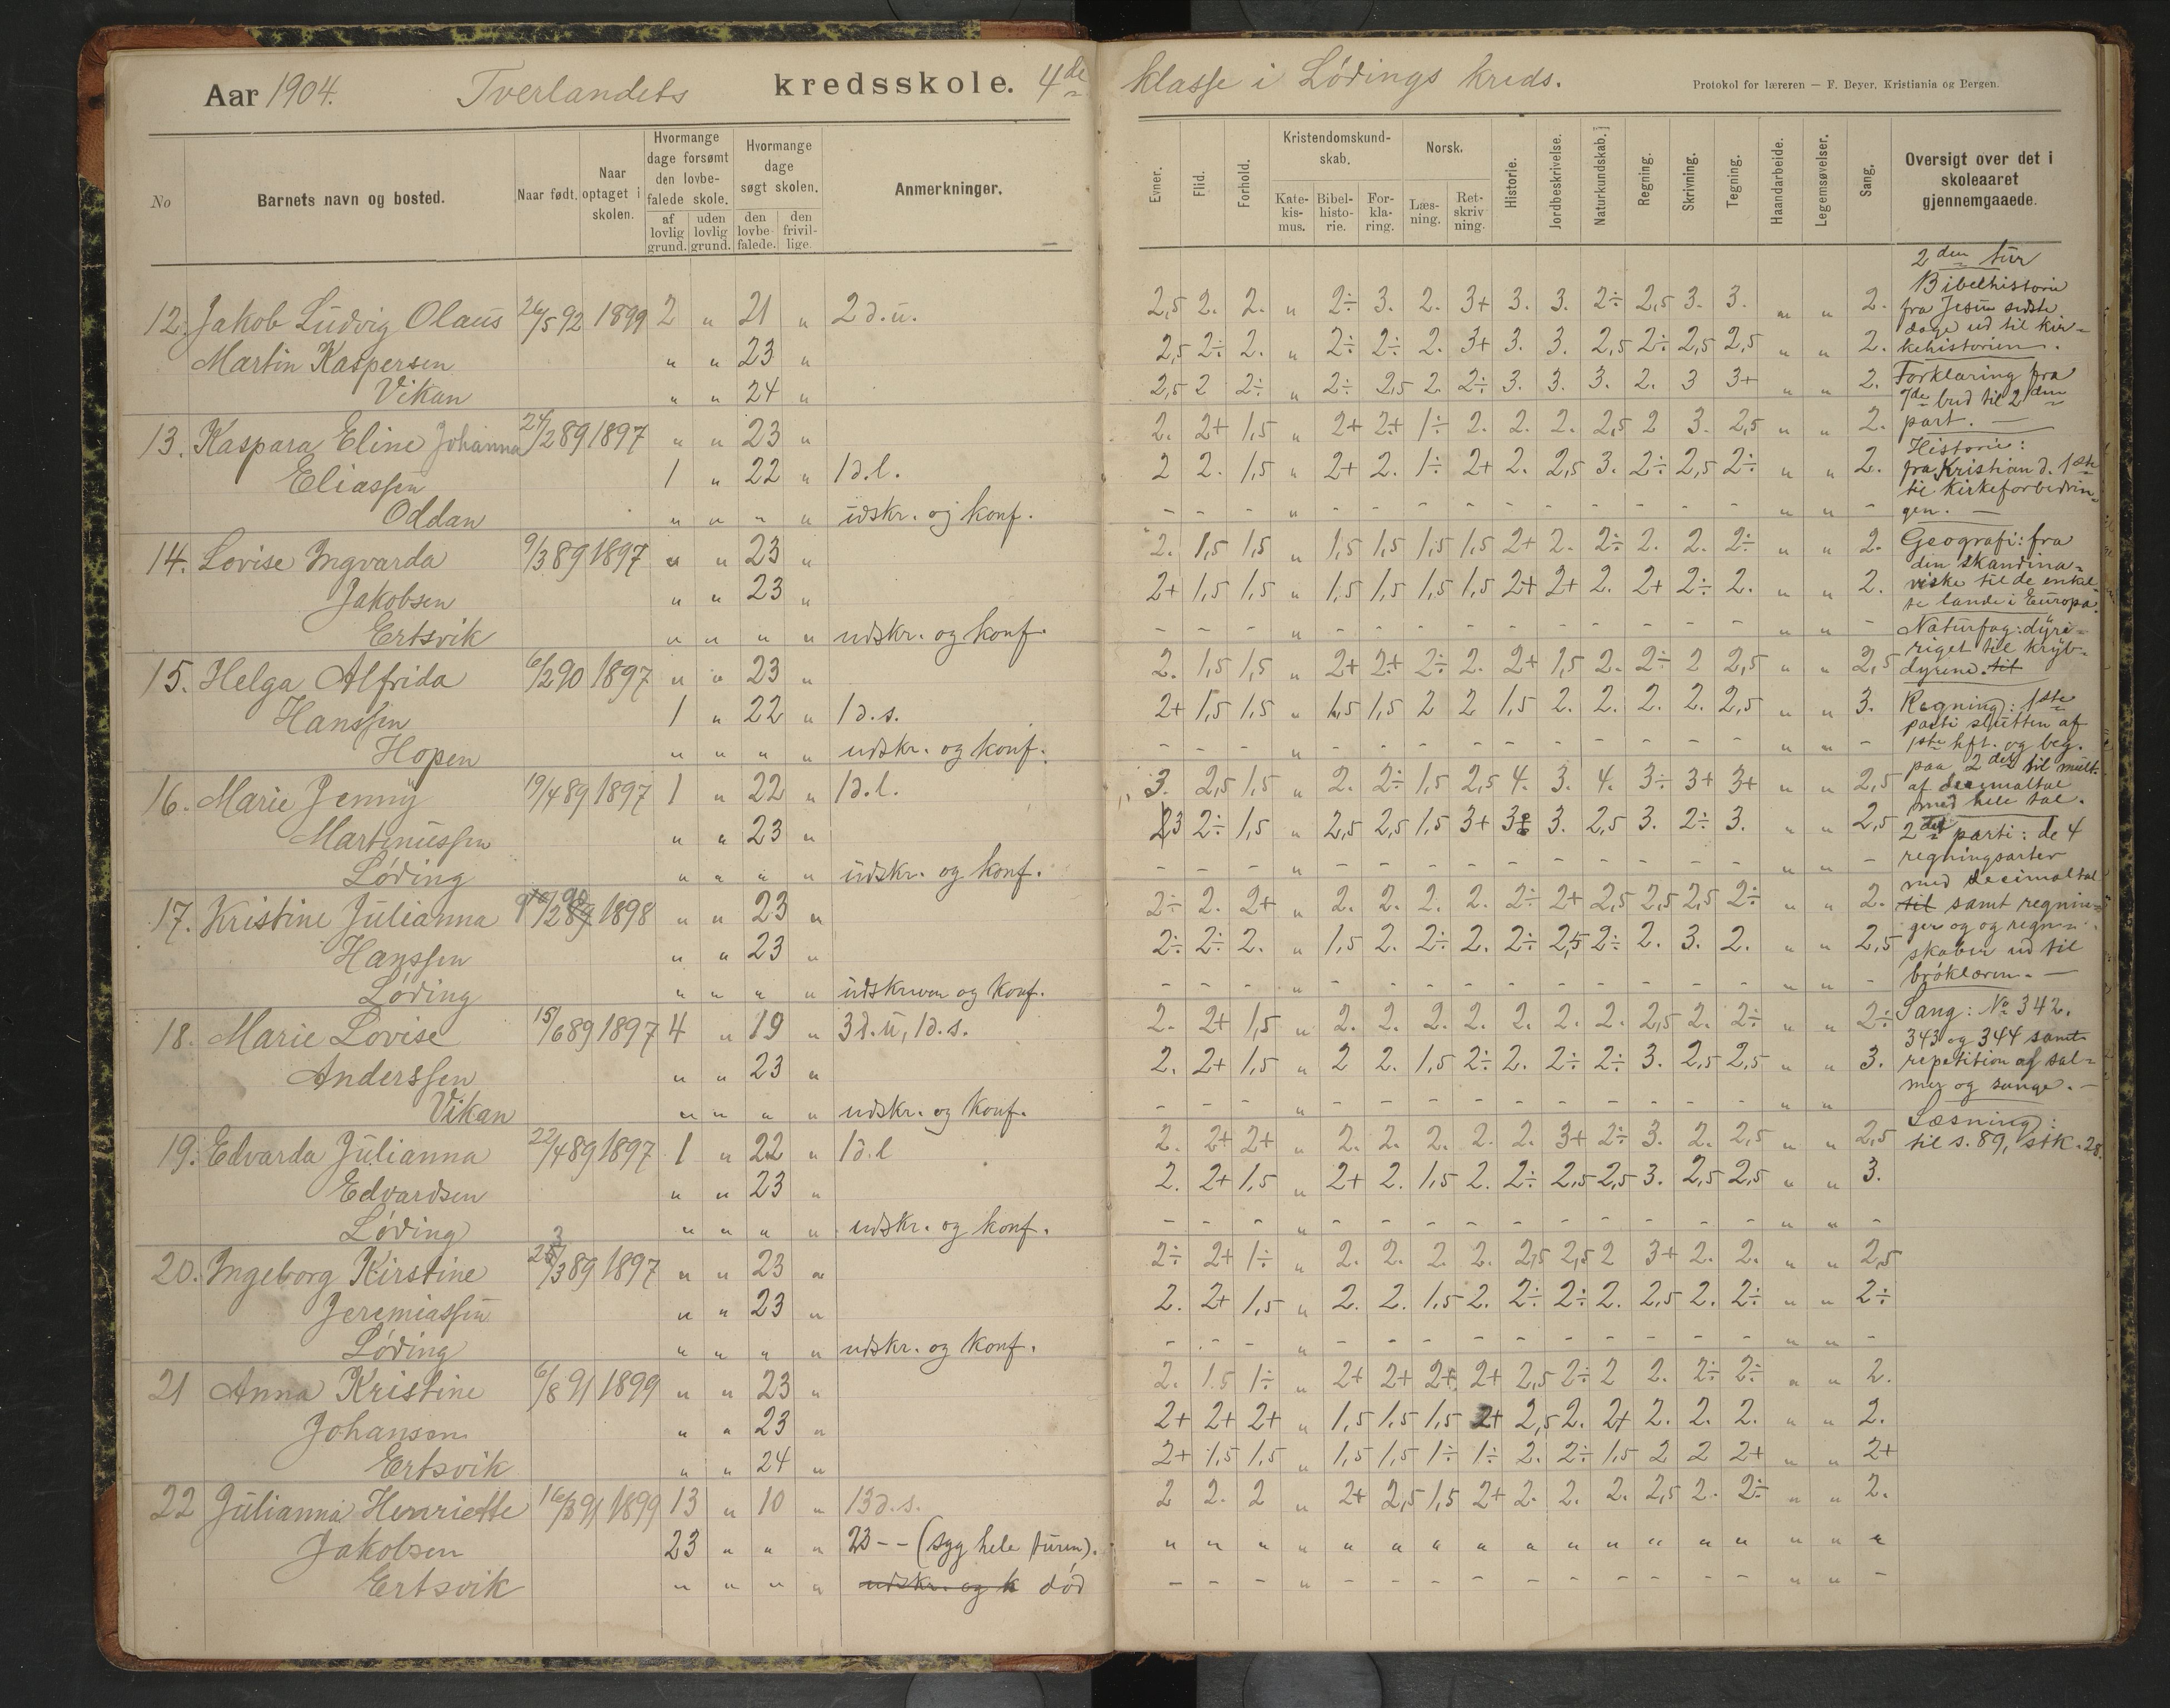 Aar 1904. Tverlandets kredsskole. 4de klasse i Lødings kreds.
Protokol for læreren — F. Beyer, Kristiania og Bergen.
No
Barnets navn og bosted.
Naar født.
Naar optaget i skolen.
Hvormange dage forsømt den lovbefalede skole.
af lovlig grund.
uden lovlig grund.
Hvormange dage søgt skolen.
den lovbefalede.
den frivillige.
Anmerkninger.
Evner.
Flid.
Forhold.
Kristendomskundskab.
Katekismus.
Bibelhistorie.
Forklaring.
Norsk.
Læsning.
Retskrivning.
Historie.
Jordbeskrivelse.
Naturkundskab.]
Regning.
Skrivning.
Tegning.
Haandarbeide.
Legemsøvelser.
Sang.
Oversigt over det i skoleaaret gjennemgaaede.
12. Jakob Ludvig Olaus 26/5 92 1899 2 " 21 " 2 d. u. 2,5 2. 2. " 2÷ 3. 2. 3+ 3. 3. 2÷ 2,5 3. 3. " " 2.
Martin Kaspersen " " 23 " 2,5 2÷ 2. " 2÷ 2÷ 2. 3+ 3. 3. 2,5 2÷ 2,5 2,5 " " 2.
Vikan " " 24 " 2,5 2 2÷ " 2÷ 2,5 2. 2÷ 3. 3. 3. 2. 3 3+ " " 2.
13. Kaspara Eline Johanna 24/2 89 1897 " " 23 " 2. 2+ 1,5 " 2+ 2+ 1÷ 2. 2. 2. 2,5 2 3. 2,5 " " 2.
Eliassen 1 " 22 " 1 d. l. 2 2. 1,5 " 2+ 2. 1÷ 2+ 2. 2,5 3. 2÷ 2,5 2÷ " " 2.
Oddan " " " " udskr. og konf. - - - " - - - - - - - - - - " " -
14. Lovise Ingvarda 9/3 89 1897 " " 23 " 2. 1,5 1,5 " 1,5 1,5 1,5 1,5 2+ 2. 2÷ 2. 2. 2÷ " " 2.
Jakobsen " " 23 " 2+ 1,5 1,5 " 1,5 1,5 1,5 1,5 2+ 2+ 2. 2+ 2÷ 2. " " 2.
Ertsvik " " " " udskr. og konf. - - - " - - - - - - - - - - " " -
15. Helga Alfrida 6/2 90 1897 " " 23 " 2. 1,5 1,5 " 2+ 2+ 2÷ 2. 2+ 1,5 2. 2÷ 2 2,5 " " 2,5
Hanssen 1 " 22 " 1 d. s. 2+ 1,5 1,5 " 1,5 1,5 2 2 1,5 2. 2. 2. 2. 2,5 " " 3.
Hopen " " " " udskr. og konf. - - - " - - - - - - - - - - " " -
16. Marie Jenny 19/4 89 1897 1 " 22 " 1 d. l. 3. 2,5 1,5 " 2. 2÷ 1,5 2,5 4. 3. 4. 3÷ 3+ 3+ " " 2,5
Martinussen " " 23 " 3 2÷ 1,5 " 2,5 2,5 1,5 3+ 3÷ 3. 2,5 3. 2÷ 3. " " 2,5
Løding " " " " udskr. og konf. - - - " - - - - - - - - - - " " -
17. Kristine Julianna 1898 " " 23 " 2÷ 2. 2+ " 2. 2. 2. 2. 2÷ 2+ 2,5 2,5 2,5 2÷ " " 2.
Hanssen " " 23 " 2÷ 2÷ 2. " 1,5 2. 2÷ 2. 2÷ 2,5 2÷ 2. 3. 2. " " 2,5
Løding " " " " udskreven og konf. - - - " - - - - - - - - - - " " -
18. Marie Lovise 15/6 89 1897 4 " 19 " 3 d. u, 1 d. s. 2. 2+ 1,5 " 2. 2. 2. 2. 2. 2. 2. 2,5 2. 2÷ " " 2÷
Anderssen " " 23 " 2. 2+ 1,5 " 2 2. 1,5 2÷ 2. 2÷ 2÷ 3. 2,5 2,5 " " 3.
Vikan " " " " udskr. og konf. - - - " - - - - - - - - - - " "
19. Edvarda Julianna 22/4 89 1897 1 " 22 " 1 d. l 2. 2+ 2+ " 2. 2. 2. 2. 2. 3+ 2÷ 3. 2. 2,5 " " 2,5
Edvardsen " " 23 " 2. 2+ 1,5 " 2+ 2. 1,5 2. 2÷ 2,5 2,5 3. 2,5 2,5 " " 3.
Løding " " " " udskr. og konf. - - - " - - - - - - - - - - " " -
20. Ingeborg Kirstine 89 1897 " " 23 " 2÷ 2+ 1÷ " 2. 2. 2. 2. 2,5 2,5 2 3+ 2. 2. " " 2,5
Jeremiassen " " 23 " 2. 2+ 1,5 " 2. 2. 1,5 2. 2÷ 2÷ 2. 2,5 2. 2÷ " " 2÷
Løding " " " " udskr. og konf. - - - " - - - - - - - - - - " " -
21 Anna Kristine 6/8 91 1899 " " 23 " 2. 1.5 1÷ " 2+ 2+ 2+ 2+ 2,5 2÷ 2 2. 2÷ 2÷ " " 2.
Johansen " " 23 " 2+ 2+ 2+ " 1,5 1,5 1,5 2+ 2,5 2. 2+ 2. 2. 2. " " 2.
Ertsvik " " 24 " 2+ 1,5 1,5 " 1,5 1,5 1÷ 1÷ 2. 2÷ 1,5 2 2 2+ " " 2+
22 Julianna Henriette 91 1899 13 " 10 " 13 d. s. 2 2. 2 " 2+ 2,5 1,5 2+ 2. 2. 2. 2,5 2. 2÷ " " 2.
Jakobsen 23 " " " 23 - - (syg hele turen). " " " " " " " " " " " " " " " " "
Ertsvik " " " " udskr. og k død - - - " - - - - - - - - - - " " -
2den tur
Bibelhistorie
fra Jesu sidste
dage ud til kir-
kehistorien.
Forklaring fra
7de bud til 2den
part. —
Historie:
fra Kristian d. 1ste
til kirkeforbedrin-
gen. —
Geografi: fra
den skandina-
viske til de enkel-
te lande i Europa.
Naturfag: dyre-
riget til kryb-
dyrene. til
Regning: 1ste
parti slutten af
1ste hft. og beg.
paa 2det til mult.
af decimaltal
med hele tal.
2det parti: de 4
regningsarter
med decimaltal
til samt regnin-
ger og og regn-
skaber ud til
brøklæren. —
Sang: No 342.
343 og 344 samt
repetition af sal-
mer og sange. —
Læsning:
til s. 89, stk. 28.